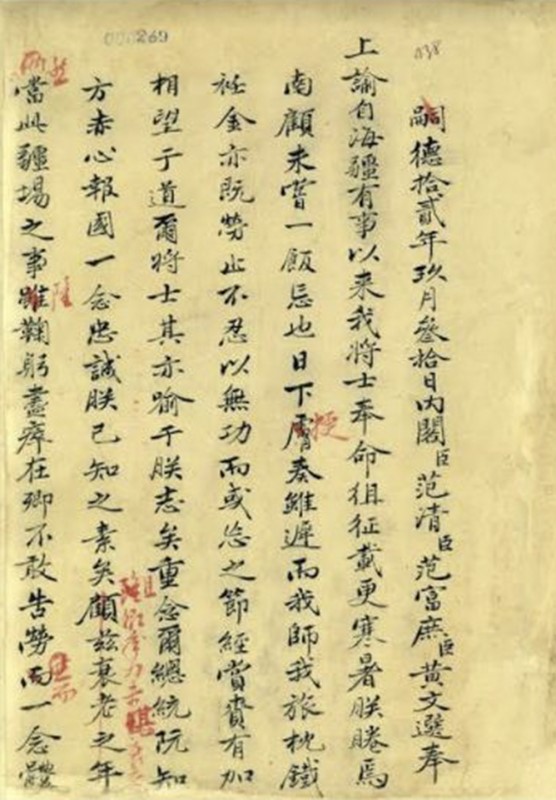 000269
038
嗣德拾貳年玖月叁拾日內閣臣范清臣范富庶臣黃文選奉
上諭自海疆有事以來我將士奉命徂征載更寒暑朕睠焉
南顧未嘗一飯忘也日下膚奏雖遲而我師我旅枕鐵
衽金亦既勞止不忍以無功而或忘之節經賞賚有加
相望于道爾將士其亦喻于朕志矣重念爾總統阮知
方赤心報國一念忠誠朕已知之素矣顧茲衰老之年
當此疆場之事雖鞠躬盡瘁在卿不敢告勞而一念體